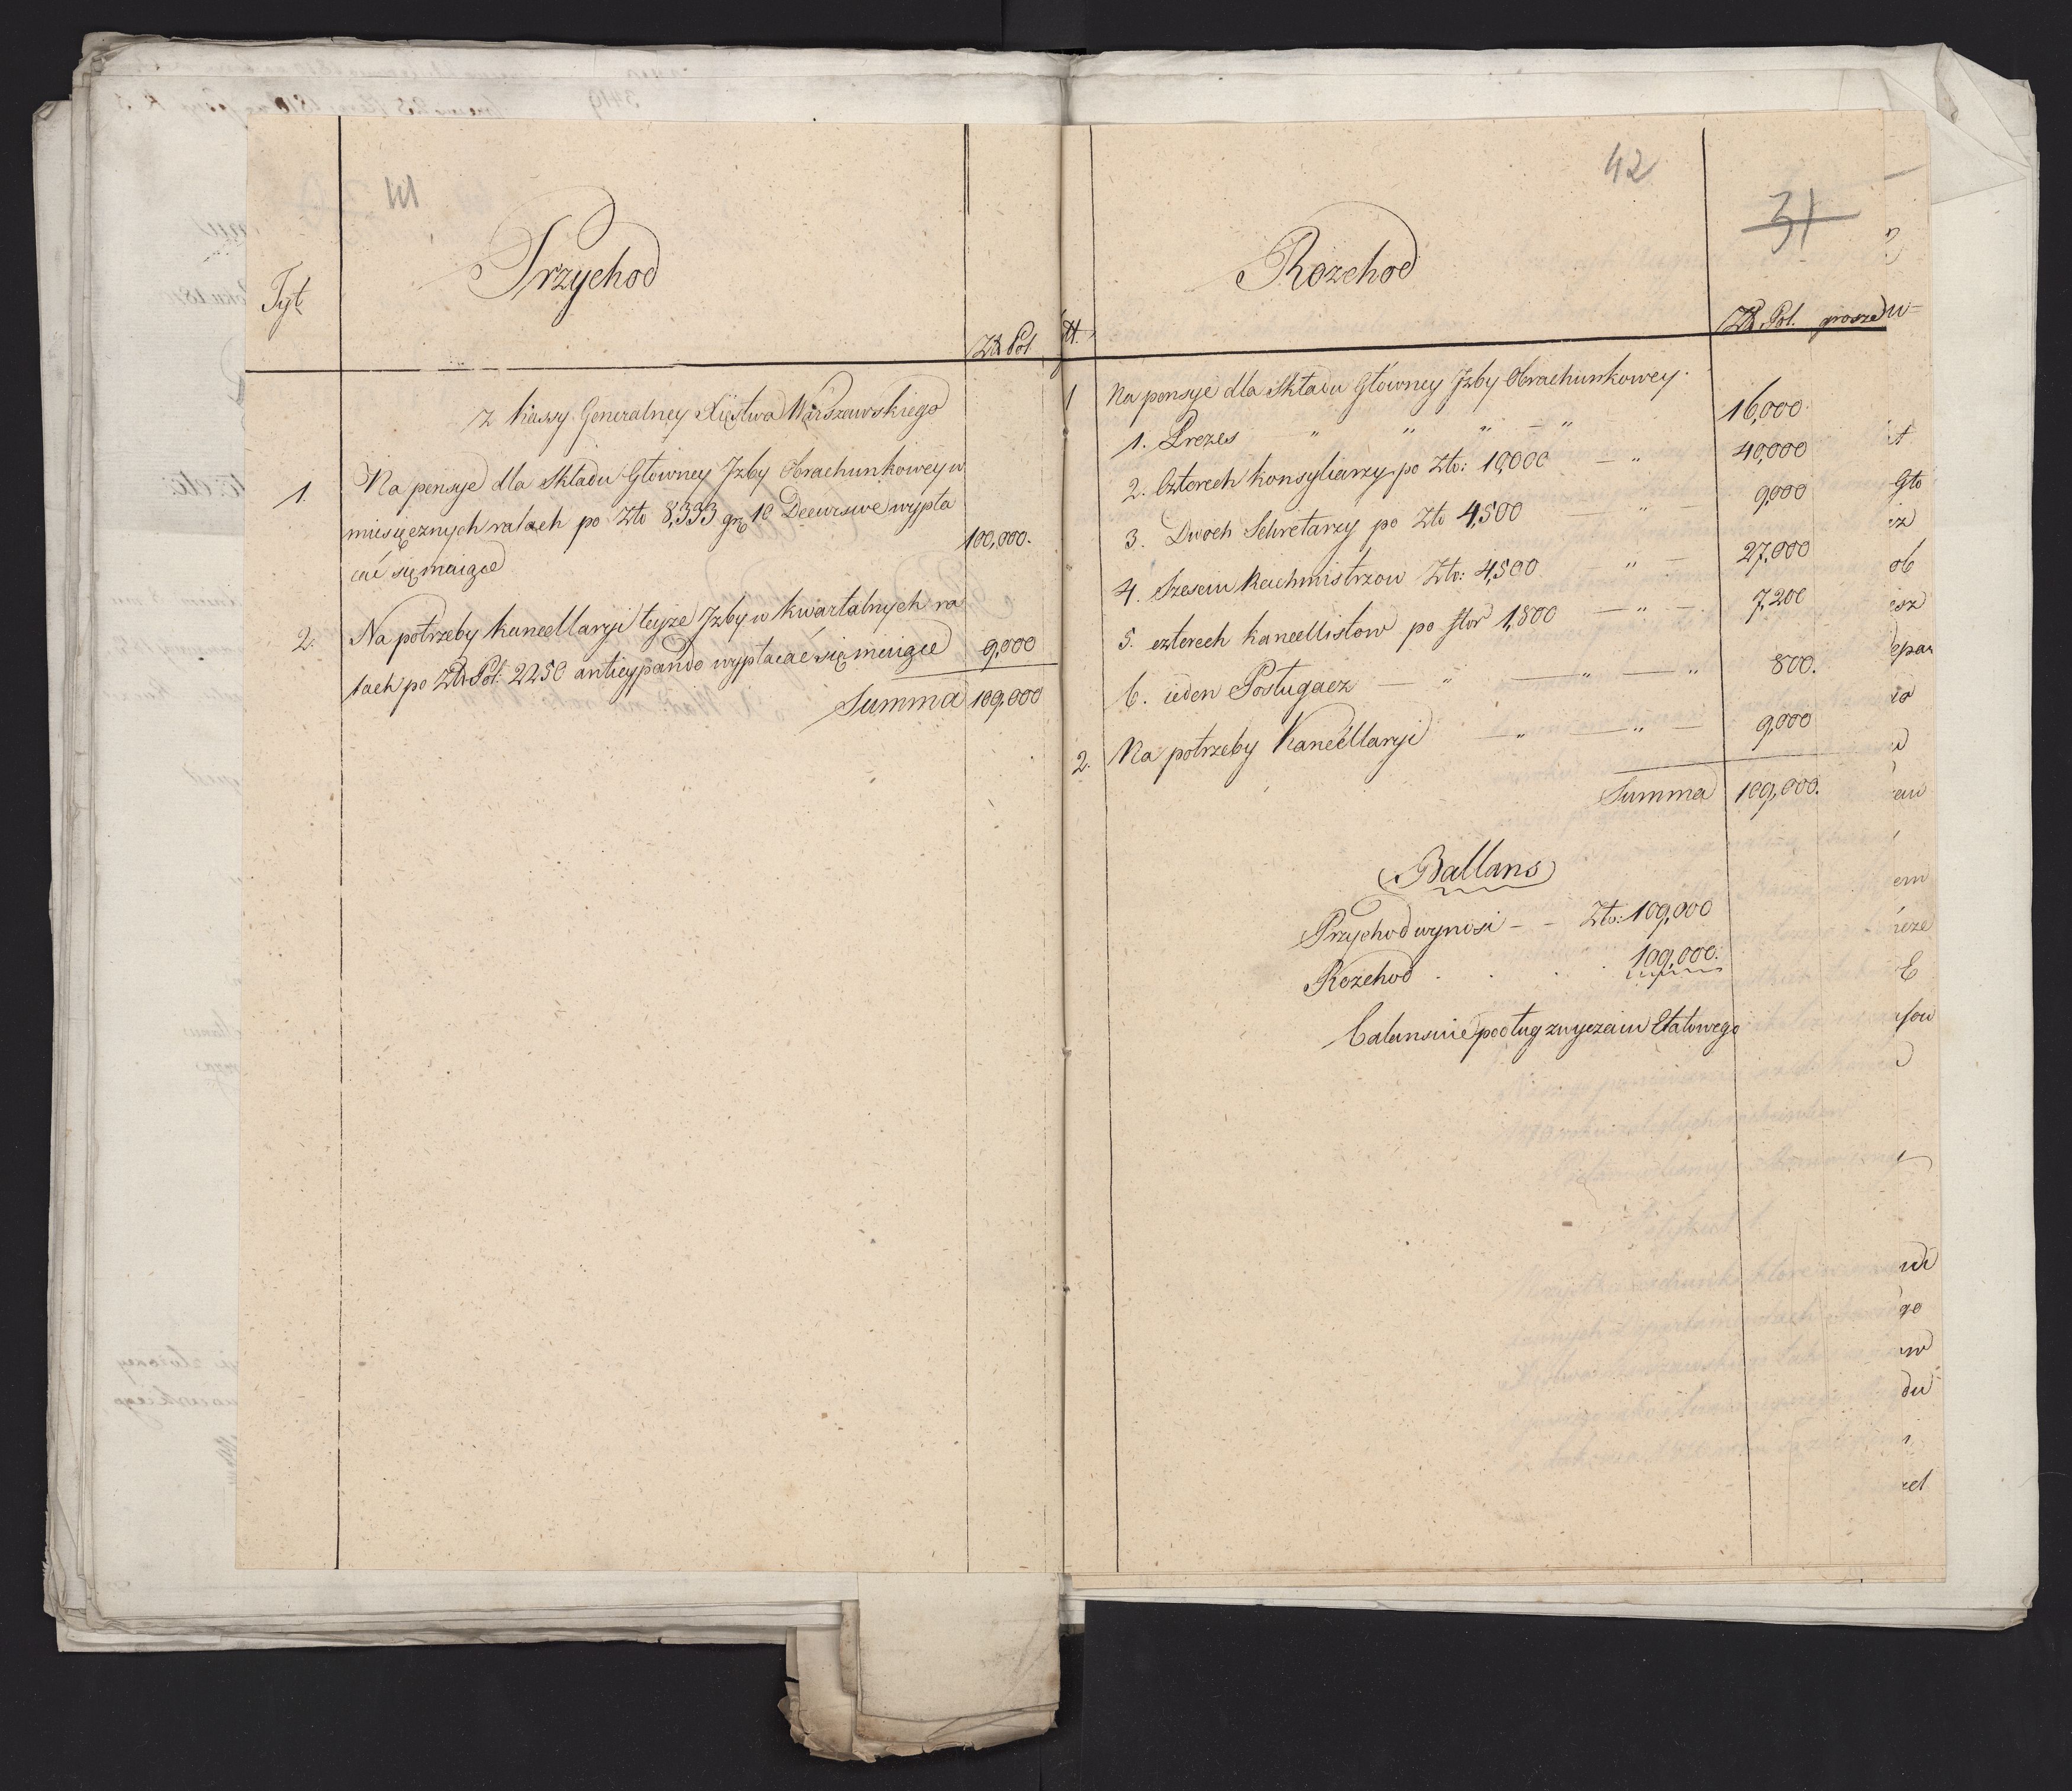 41
Tyt.
Przychod
Zł. Pol.
z Kassy Generalney Xięstwa Warszawskiego
1. Na pensye dla Składu Głowney Jzby Obrachunkowey w
miesięcznych ratach po Zło 8,333 gr 10 Decursive wypła
cać się maiące 100,000.
2. Na potrzeby kancellaryi teyże Jzby w kwartalnych ra
tach po Zł. Pol: 2250 anticypando wypłacać się maiące 9,000
Summa 109,000
42
31
Tt.
Rozchod
Zł. Pol. grosze
1 Na pensye dla Składu Głowney Jzby Obrachunkowey.
1. Prezes " " " — " 16,000.
2. Czterech konsyliarzy po Zło: 10,000 — " 40,000
3. Dwoch Sekretarzy po Zło 4,500 — " — 9,000
4. Szesciu Rachmistrzow Zło: 4,500 — " — 27,000
5. czterech kancellistow po flor 1,800 — " — 7,200
6. ieden Posługacz — " — " — " 800.
2. Na potrzeby Kancellaryi — " — " — 9,000
Summa 109,000.
Ballans
Przychod wynosi - - Zło: 109,000
Rozchod . . . . 109,000.
balansuie podług zwyczaiu Etatowego